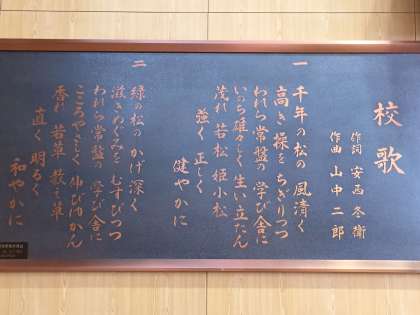 校歌
作詞 安西冬衛
作曲 山中二郎
一
千年の松の 風清く
高き操を ちぎりつつ
われら常盤の 学び舎に
いのち雄々しく 生い立たん
茂れ 若松 姫小松
強く 正しく
健やかに
二
緑の松の かげ深く
滋きめぐみを むすびつつ
われら常盤の 学び舎に
こころやさしく 伸びゆかん
香れ 若草
直く 明るく
和やかに